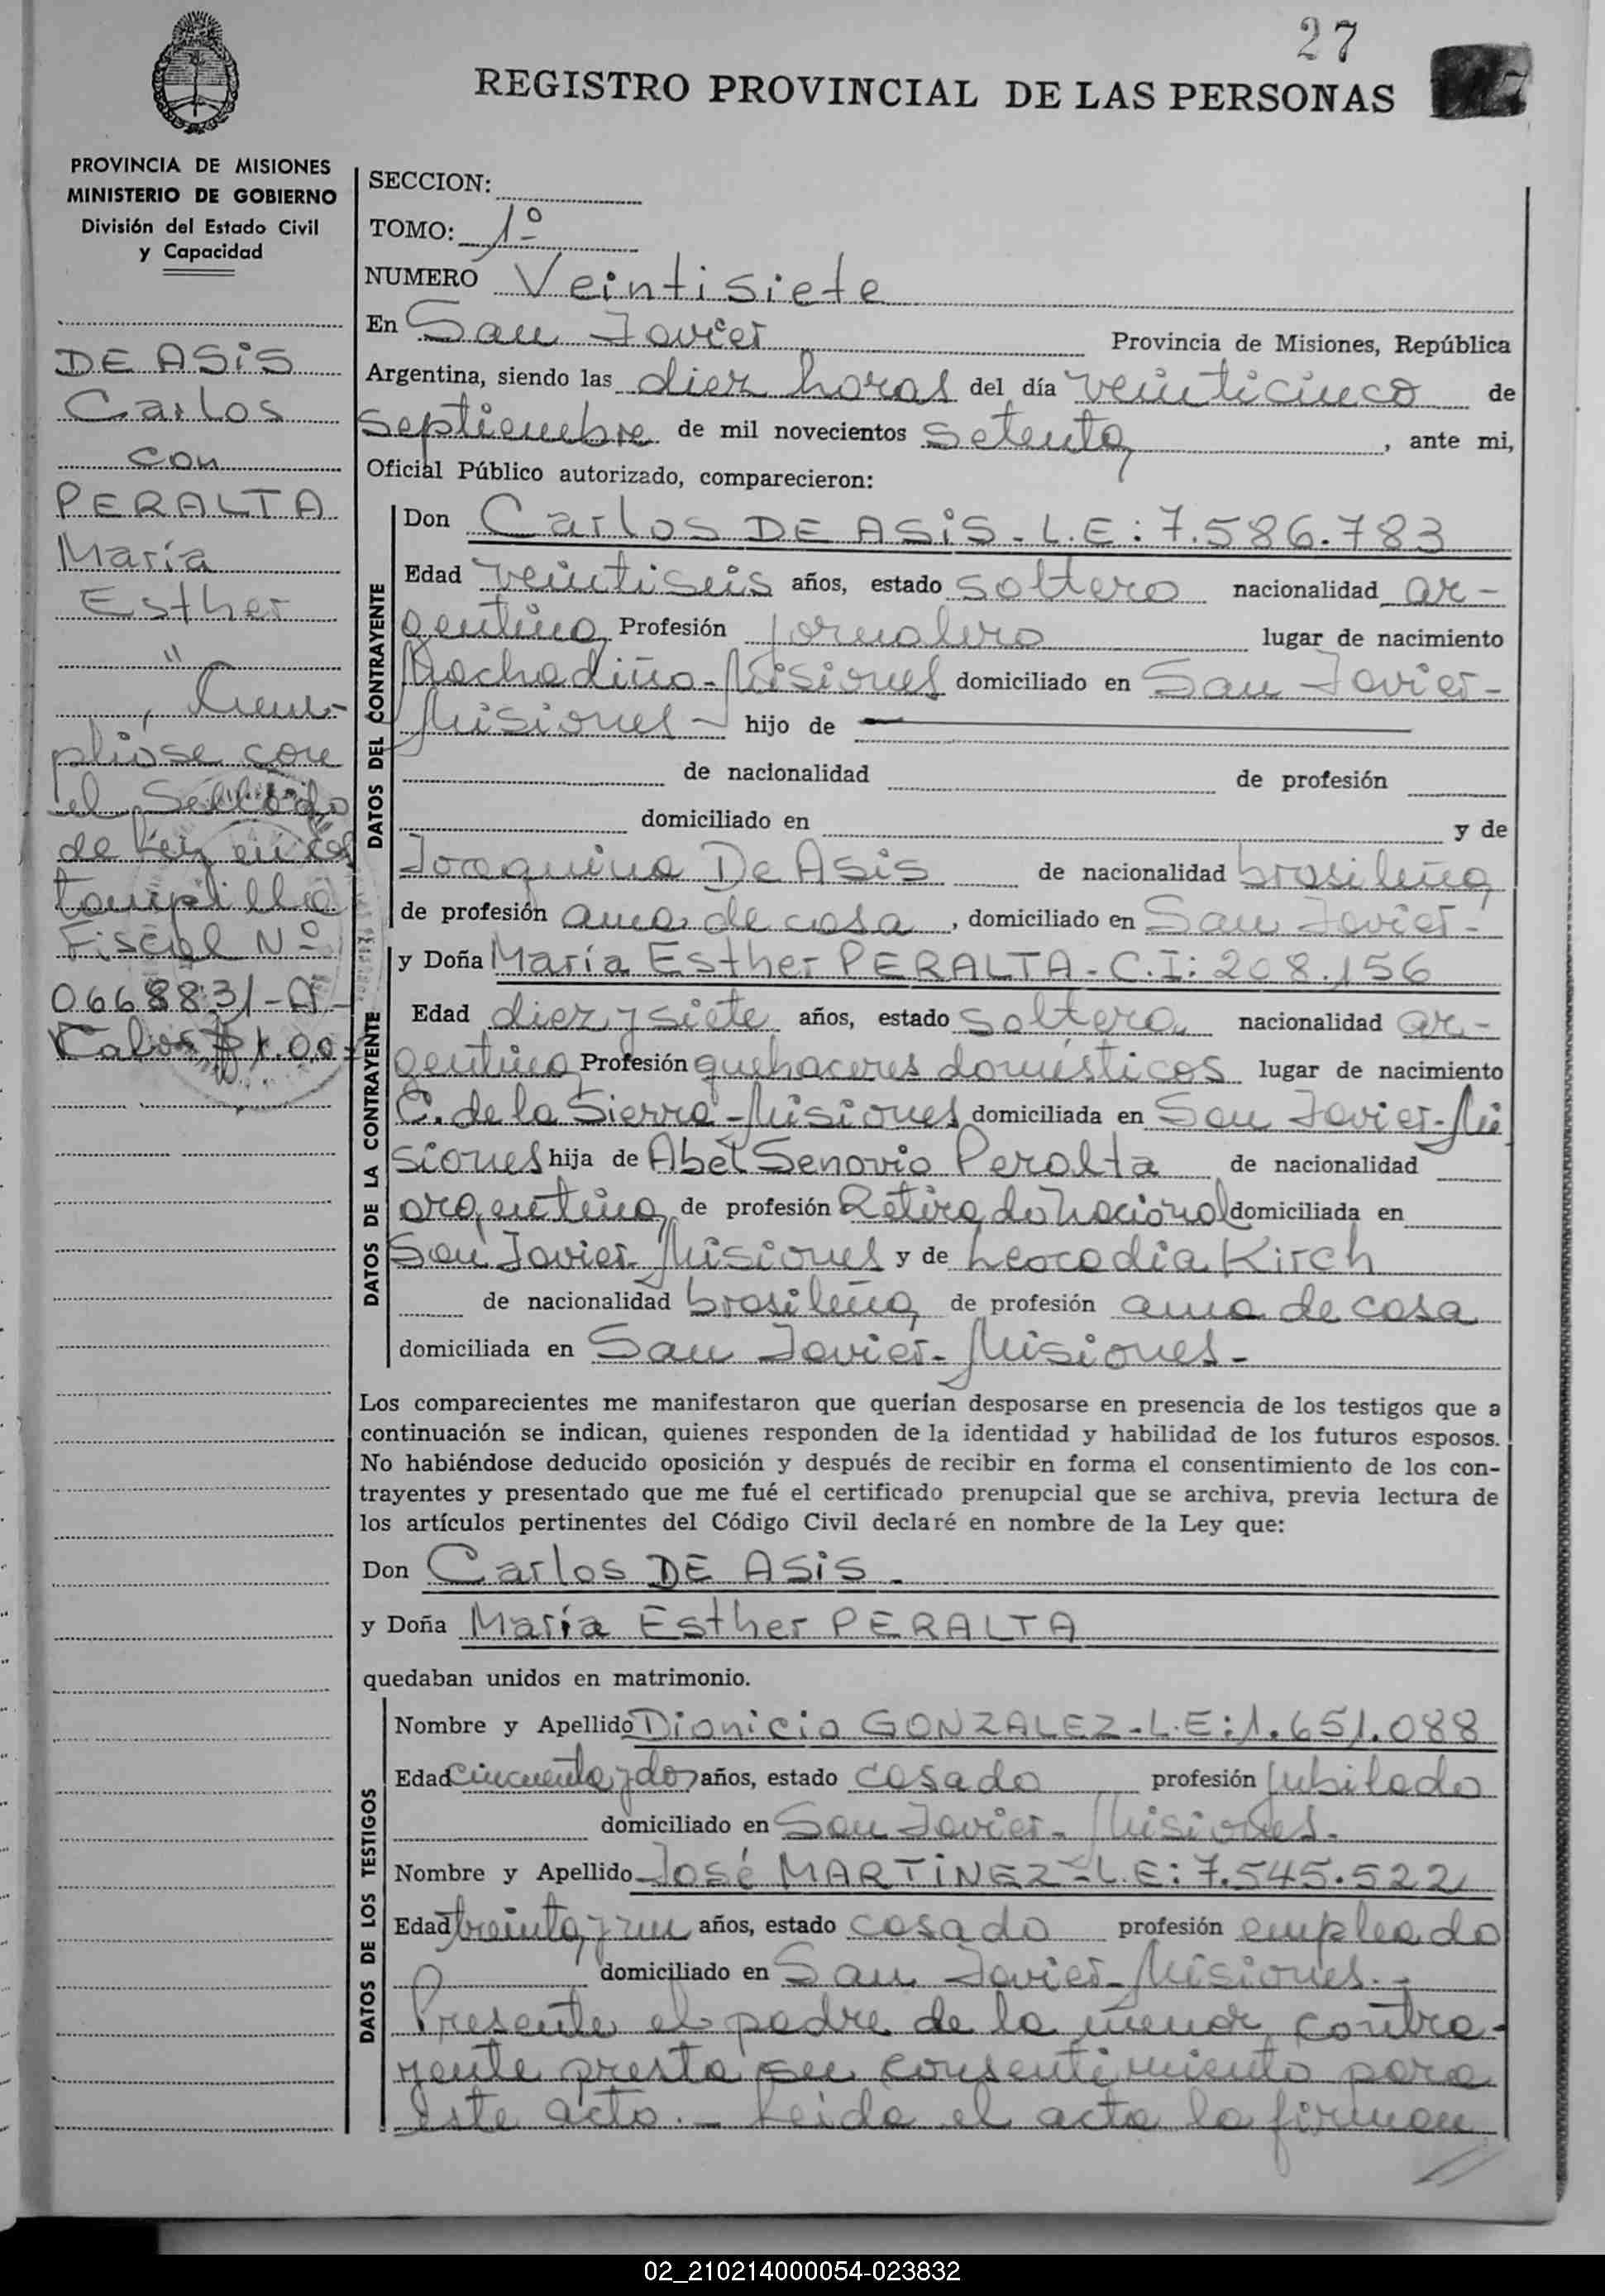 27
REGISTRO PROVINCIAL DE LAS PERSONAS
PROVINCIA DE MISIONES
MINISTERIO DE GOBIERNO
División del Estado Civil
y Capacidad
DE ASiS
Carlos
con
PERALTA
María
Esther
"
Cum-
plióse con
el Sellado
de Ley en es
tampilla
Fiscal Nº
0668831-A-
Valor $ 1.00
SECCION:
TOMO: 1º
NUMERO Veintisiete
En San Javier Provincia de Misiones, República
Argentina, siendo las diez horas del día veinticinco de
septiembre de mil novecientos setenta, ante mi,
Oficial Público autorizado, comparecieron:
DATOS DEL CONTRAYENTE
Don Carlos DE ASiS - L.E: 7.586.783
Edad veintiseis años, estado soltero nacionalidad ar-
gentina Profesión jornalero lugar de nacimiento
Machadiño-Misiones domiciliado en San Javier-
Misiones - hijo de
de nacionalidad de profesión
domiciliado en y de
Joaquina De Asis de nacionalidad brasileña
de profesión ama de casa, domiciliado en San Javier-
DATOS DE LA CONTRAYENTE
y Doña María Esther PERALTA - C.I: 208.156
Edad diez y siete años, estado soltera nacionalidad ar-
gentina Profesión quehaceres domésticos lugar de nacimiento
C. de la Sierra-Misiones domiciliada en San Javier-Mi
siones hija de Abel Senovio Peralta de nacionalidad
argentina de profesión Retirado Nacional domiciliada en
San Javier-Misiones y de Leocadia Kirch
de nacionalidad brasileña de profesión ama de casa
domiciliada en San Javier-Misiones-
Los comparecientes me manifestaron que querían desposarse en presencia de los testigos que a
continuación se indican, quienes responden de la identidad y habilidad de los futuros esposos.
No habiéndose deducido oposición y después de recibir en forma el consentimiento de los con-
trayentes y presentado que me fué el certificado prenupcial que se archiva, previa lectura de
los artículos pertinentes del Código Civil declaré en nombre de la Ley que:
Don Carlos DE ASiS -
y Doña María Esther PERALTA
quedaban unidos en matrimonio.
DATOS DE LOS TESTIGOS
Nombre y Apellido Dionicio GONZALEZ-L.E:1.651.088
Edad cincuenta y dos años, estado casado profesión jubilado
domiciliado en San Javier-Misiones.
Nombre y Apellido José MARTiNEZ-L.E: 7.545.522
Edad treinta y un años, estado casado profesión empleado
domiciliado en San Javier-Misiones.-
Presente el padre de la menor contra-
yente presta su consentimiento para
este acto.- Leída el acta la firman
//
02_210214000054-023832